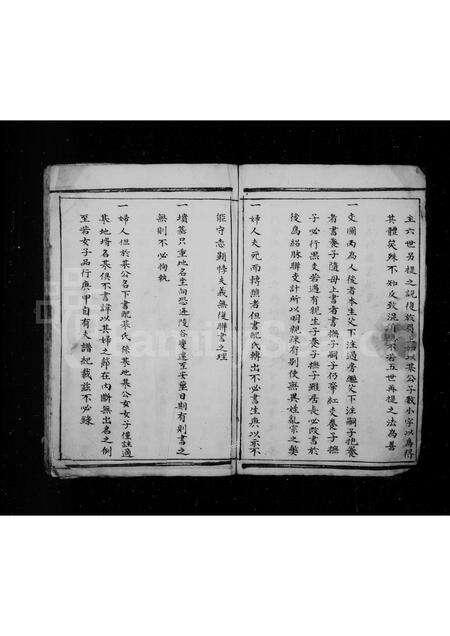 主六世另提之說後於
某公子數小字以為得
其體英殊不知反致混
若五世再提之法為善
一支圖內為人後者本生父下注過房繼父下注嗣子抱養
者書養子隨母上書者書撫子嗣子仍筆紅支養子撫
子必行黑支若過有親生子養子撫子雖居長必改書於
後為紹脉聯支計所以明親疎有別使無異姓亂宗之獘
一婦人夫死而轉醮者但書配氏轉出不必書生庚以示不
能守志顯悖夫義無復聯書之理
一墳墓只重地名坐向恐透陵谷變遷至安葉日期有則書之
無則不必拘執
一婦人但於某公名下書配某氏係某地某公女女子僅註適
某地壻名某俱不書諱以其婦之節在內斷無出名之例
至若女子品行庚甲自有夫譜紀載茲不必録